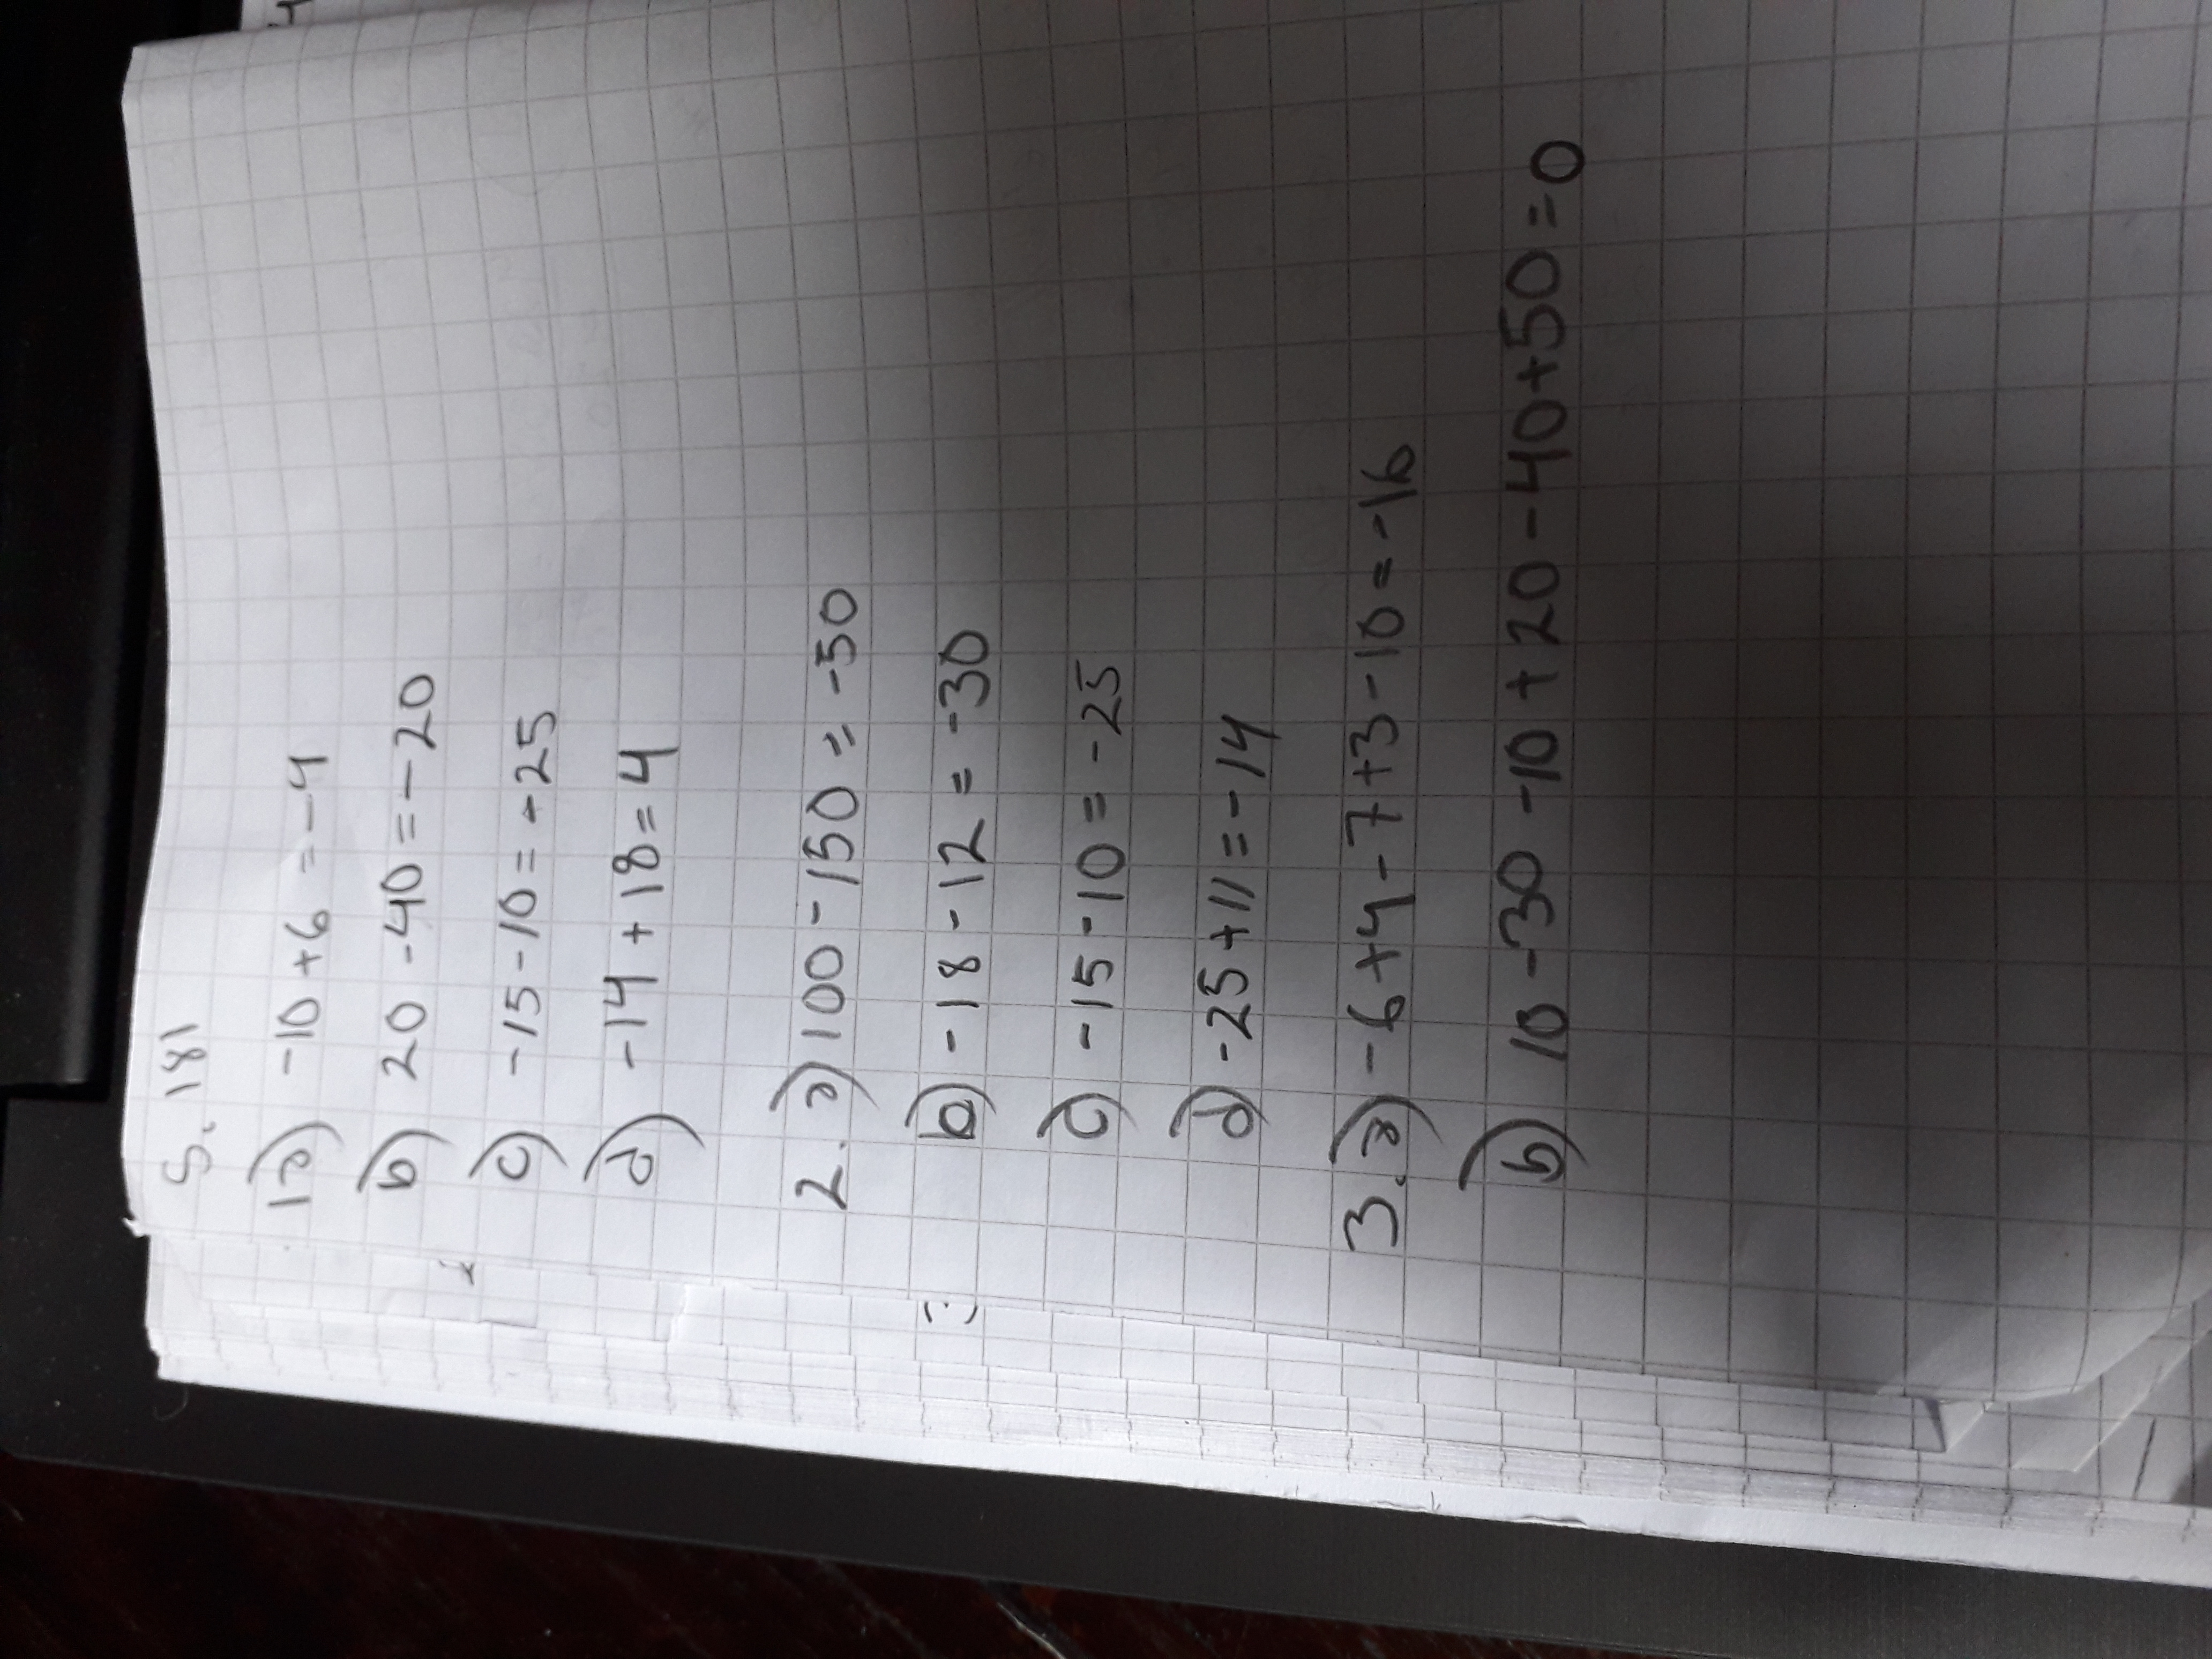 S. 181
1a) -10 + 6 = -4
b) 20 - 40 = -20
c) -15 - 10 = -25
d) -14 + 18 = 4
2. a) 100 - 150 = -50
b) -18 - 12 = -30
c) -15 - 10 = -25
d) -25 + 11 = -14
3. a) -6 + 4 - 7 + 3 - 10 = -16
b) 10 - 30 - 10 + 20 - 40 + 50 = 0